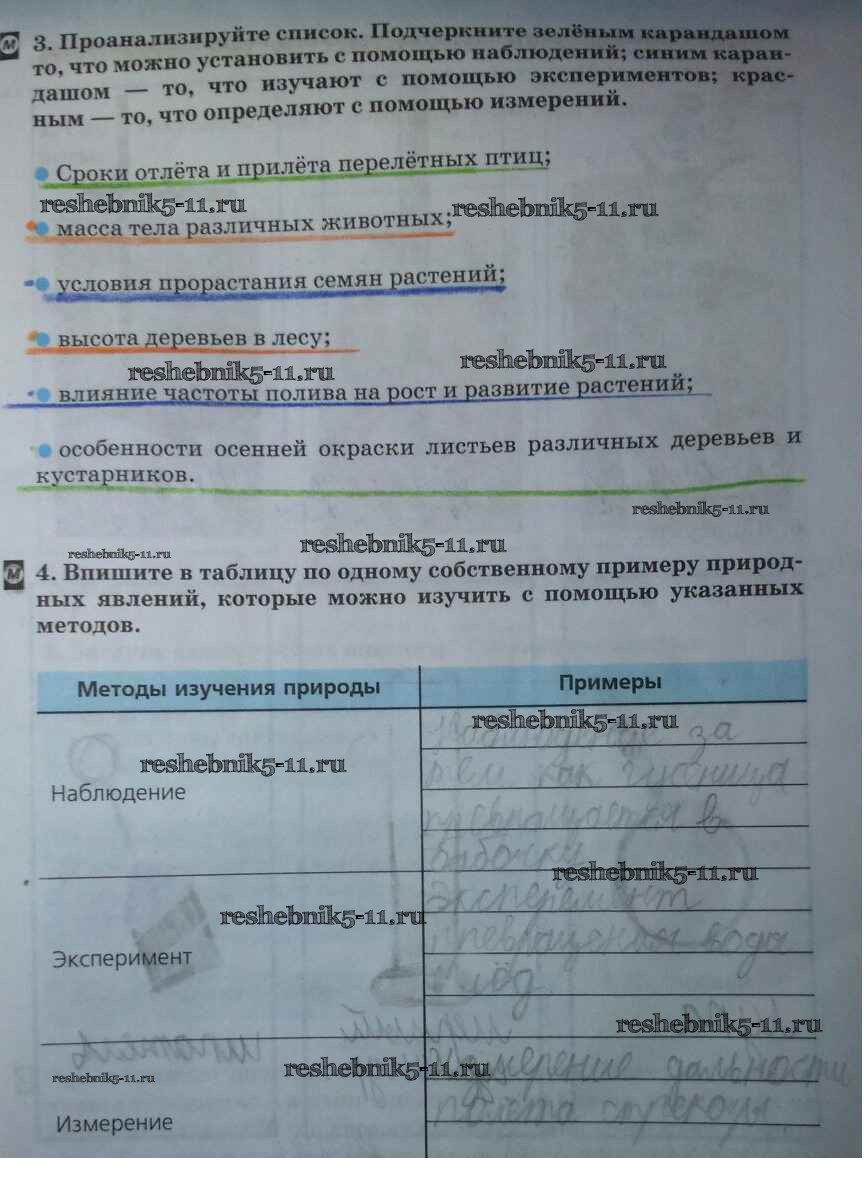 3. Проанализируйте список. Подчеркните зелёным карандашом
то, что можно установить с помощью наблюдений; синим каран-
дашом — то, что изучают с помощью экспериментов; крас-
ным — то, что определяют с помощью измерений.
Сроки отлёта и прилёта перелётных птиц;
reshebnik5-11.ru reshebnik5-11.ru
масса тела различных животных;
условия прорастания семян растений;
высота деревьев в лесу;
reshebnik5-11.ru reshebnik5-11.ru
влияние частоты полива на рост и развитие растений;
особенности осенней окраски листьев различных деревьев и
кустарников.
reshebnik5-11.ru
reshebnik5-11.ru reshebnik5-11.ru
4. Впишите в таблицу по одному собственному примеру природ-
ных явлений, которые можно изучить с помощью указанных
методов.
Методы изучения природы Примеры
reshebnik5-11.ru
за
reshebnik5-11.ru
тем как гусеница
Наблюдение
превращается в
бабочку
reshebnik5-11.ru
Эксперемент
reshebnik5-11.ru
превращения воды
Эксперимент
в лёд
reshebnik5-11.ru
Измерение дальности
reshebnik5-11.ru reshebnik5-11.ru
полёта
Измерение